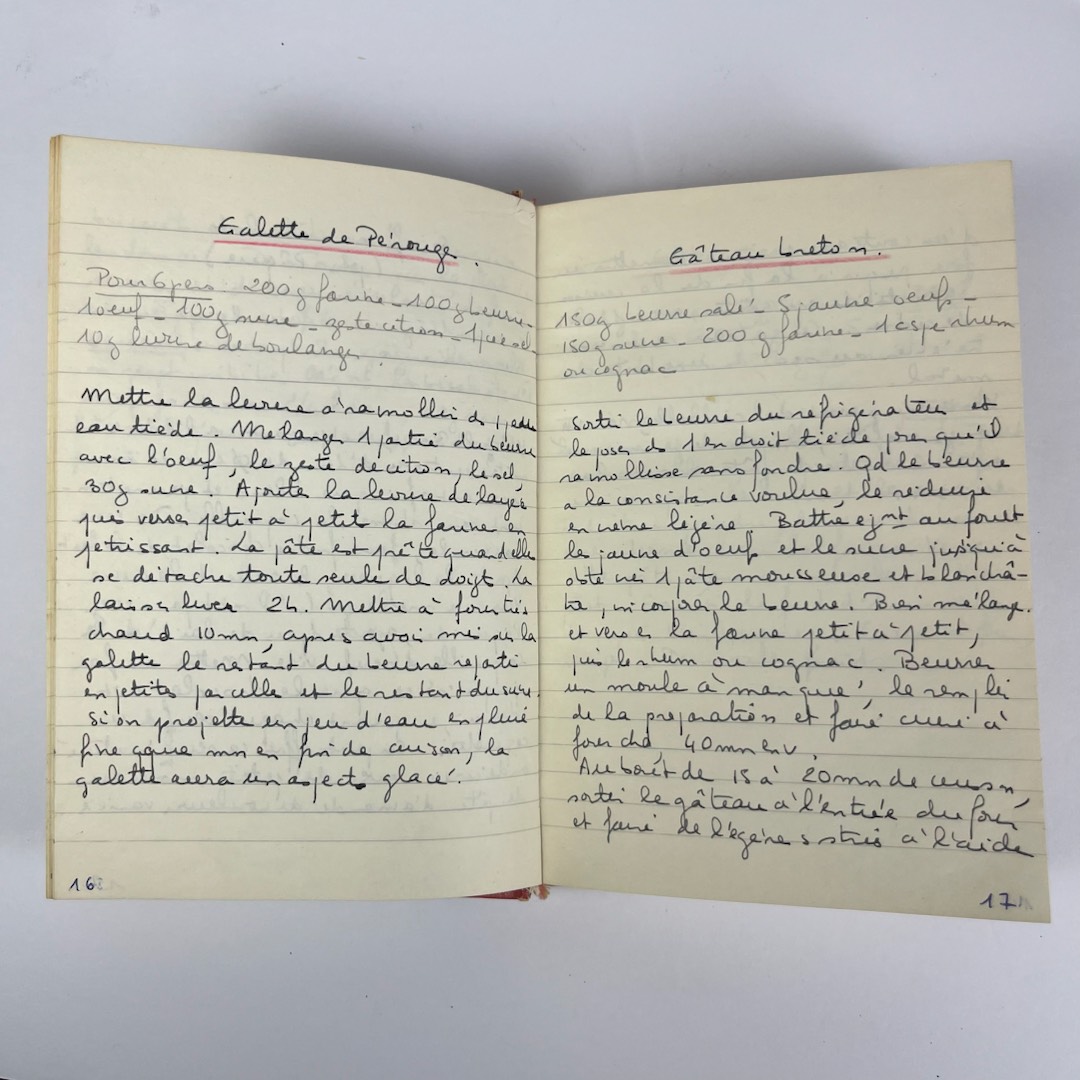 Galette de Pérouge.
Pour 6 pers. 200g farine - 100g beurre -
1 oeuf - 100g sucre - zeste citron - 1 pie sel -
10g levure de boulanger.
Mettre la levure à ramollir ds 1 peu
eau tiède. Mélanger 1 partie du beurre
avec l'oeuf, le zeste de citron, le sel,
30g sucre. Ajouter la levure délayée
puis verser petit à petit la farine en
petrissant. La pâte est prête quand elle
se détache toute seule de doigt. La
laisser lever 2h. Mettre à four très
chaud 10mn, après avoir mis sur la
galette le restant du beurre réparti
en petites parcelles et le restant du sucre.
Si on projette un jeu d'eau en pluie
fine qque mn en fin de cuisson, la
galette aura un aspect glacé.
16
Gâteau breton.
150g beurre salé - 5 jaune oeufs -
150g sucre - 200g farine - 1 cspe rhum
ou cognac
Sortir le beurre du réfrigérateur et
le poser ds 1 endroit tiède pour qu'il
ramollisse sans fondre. Qd le beurre
a la consistance voulue, le réduire
en crème légère. Battre ejmt au fouet
les jaune d'oeuf et le sucre jusqu'à
obtenir 1 pâte mousseuse et blanchâ-
tre, incorporer le beurre. Bien mélanger
et verser la farine petit à petit,
puis le rhum ou cognac. Beurrer
un moule à manqué, le remplir
de la préparation et faire cuire à
four chd, 40mn env.
Au bout de 15 à 20mn de cuisson,
sortir le gâteau à l'entrée du four
et faire de légères stries à l'aide
17